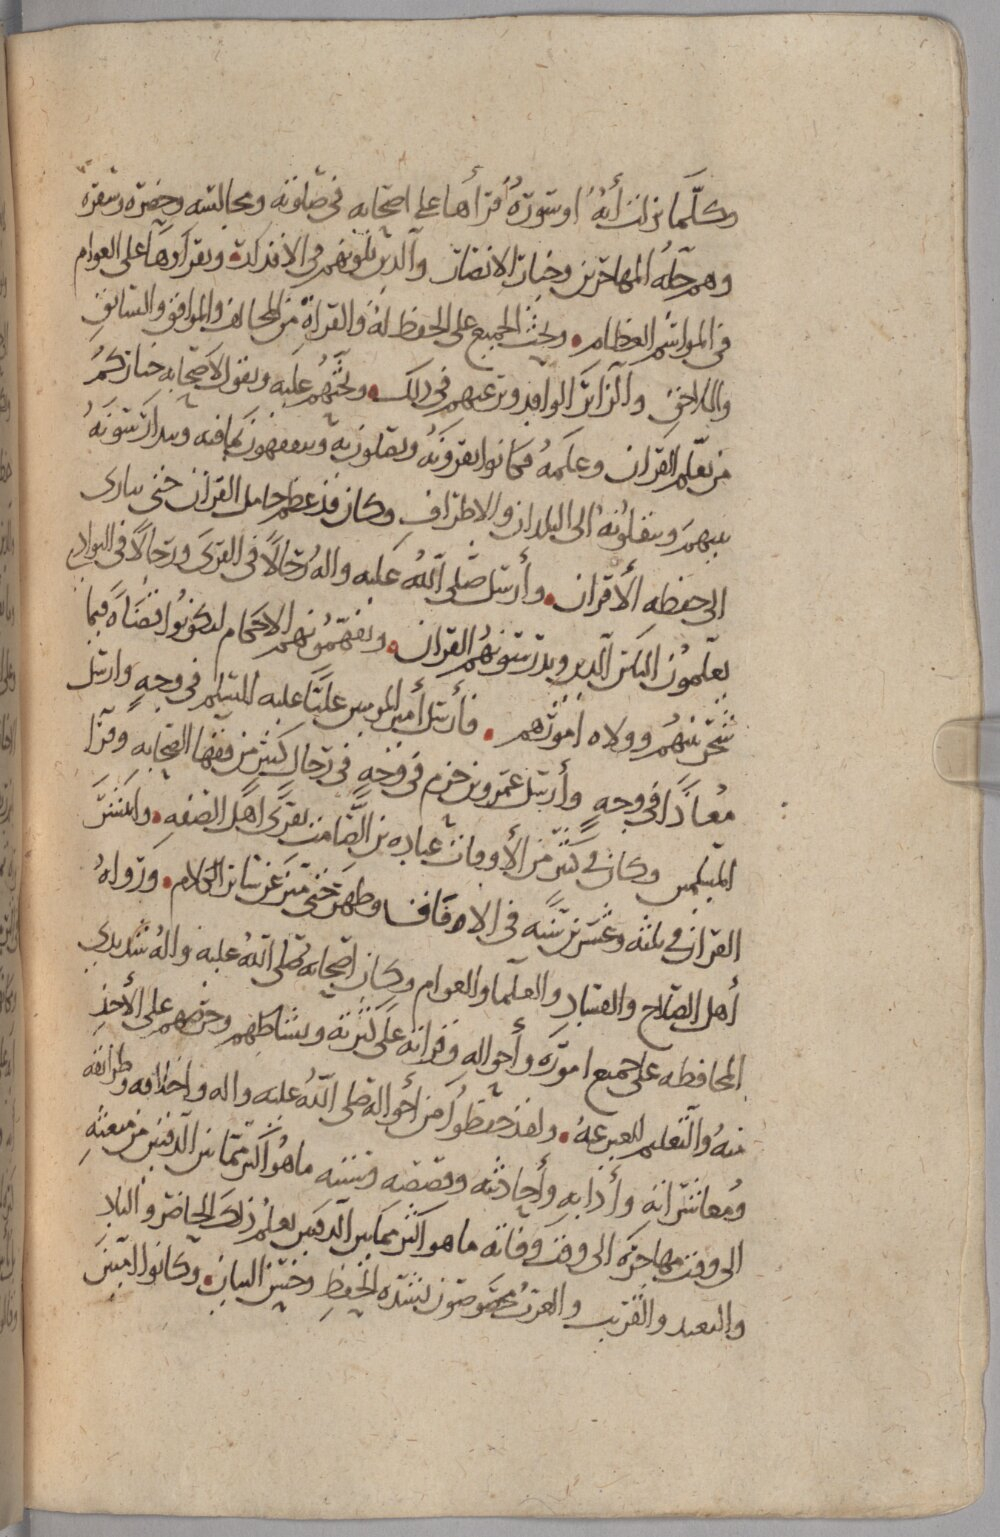 وكلّما نزلت أيةٌ او سورةٌ قرأها على اصحابه في صلوته ومجالسه وحضره وسفره
وهم جلّةُ المهاجرين وخيار الانصار والذين يلونهم في الاقدار كذلك ويقرأوها على العوام
في المواسم العظام • ويحث الجميع على الحفظ له والقراة من المخالف والموافق والسابق
واللاحق والزائر الوافد ويرغبهم في ذلك • ويحثهم عليه ويقول لاصحابه خياركم
من تعلّم القران وعلمهُ فكانوا يقرونَهُ ويصلون به ويتفقهون بما فيه ويتدارسونه
بينهم وينقلونهُ الى البلدان والاطراف وكان قد عظم حامل القرآن حتى تبارى
الى حفظه الأقران • وأرسل صلّى اللهُ عليه واله رجالاً في القرى ورجالاً في البوادي
يعلمون الناس الدين ويدرسونهُم القران • ويفهمونهم الاحكام ليكونوا قضاةً فيما
شجر بينهُم وولاه امورهم • فأرسل أمير المومنين عليًّا عليه السلم في وجهٍ وارسل
معاذًا في وجهٍ وأرسل عمرو بن حزم في وجهٍ في رجال كثير من فقها الصحابه وقرّا
المسلمين وكان في كثير من الأوقات عباده بن الصامت يقرى اهل الصفه • وانتشر
القران في ثلثه وعشرين سنه في الافاق وظهر حتى تميز عن سائر الكلام • ورواهُ
أهل الصلاح والعباد والعلما والعوام وكان اصحابه صلى اللهُ عليه واله شديدي
المحافظه على جميع اموره وأحواله وقرانه على كثرته ونشاطهم وحرصهم على الأخذِ
منهُ والتعليم للغير عنهُ • ولقد حفظوا من أحواله صلى اللهُ عليه واله واخلاقه وطرائقه
ومُعاشراته وأدابه وأحادثه وقصصه وسننه ما هو أكثر ممّا بين الدفتين من مبعثه
الى وقت مهاجره الى وقت وفاته ما هو اكثر مما بين الدفتين يعلمُ ذلك الحاضر والباد
والبعيد والقريب والعرب مخصوصون بشدة الحفظِ وحسن البيان • وكانوا الميّز